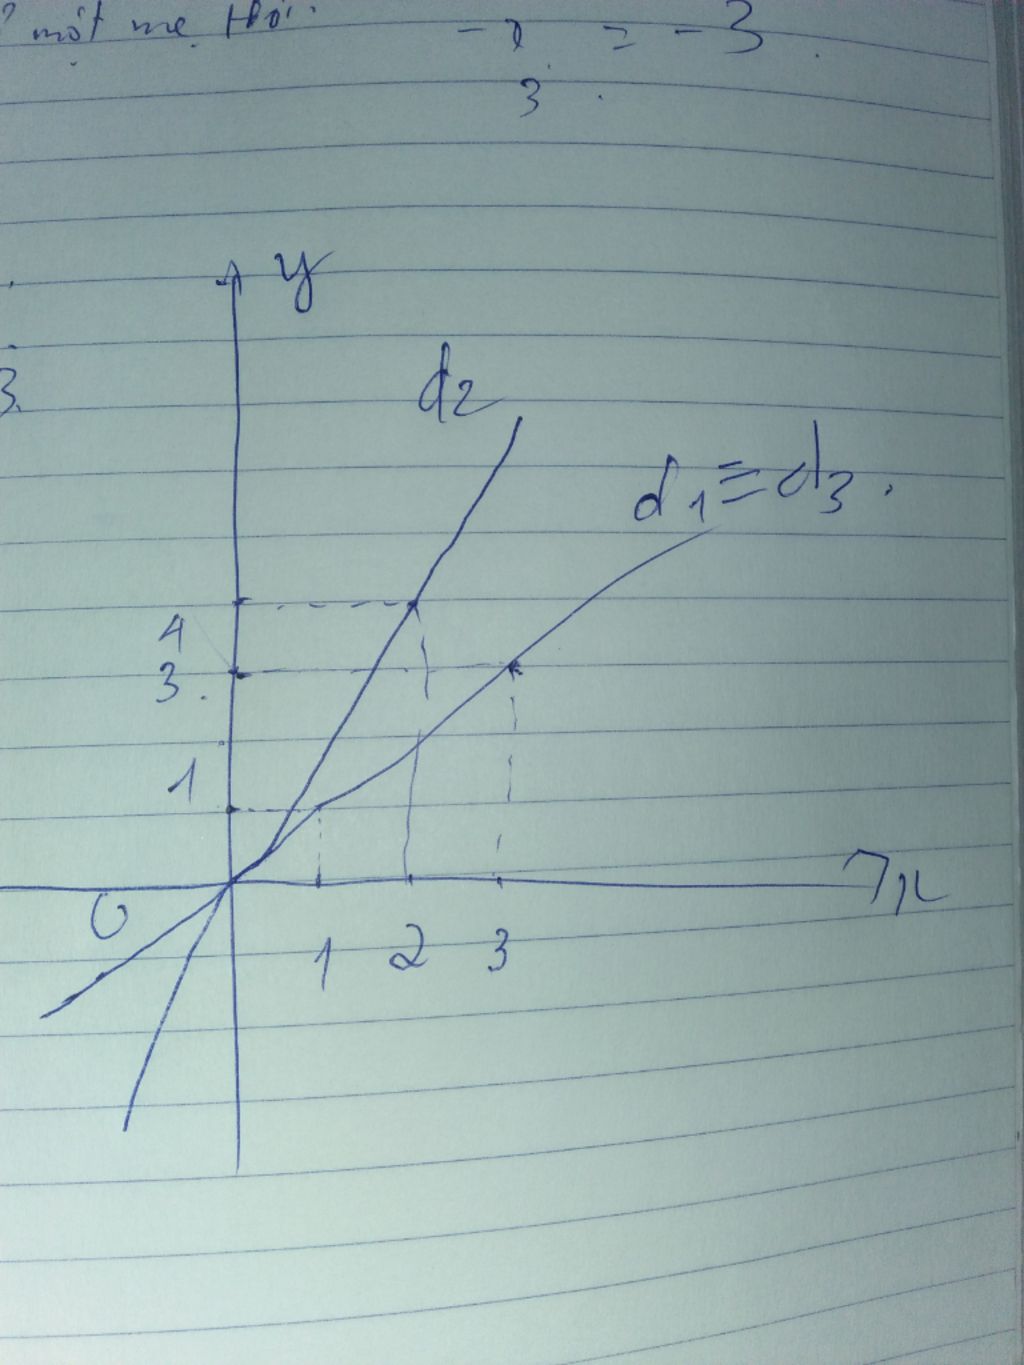 một mẹ thôi.
= -3
3
y
3.
d2
d1≡d3.
4
3.
1
x
O
1 2 3